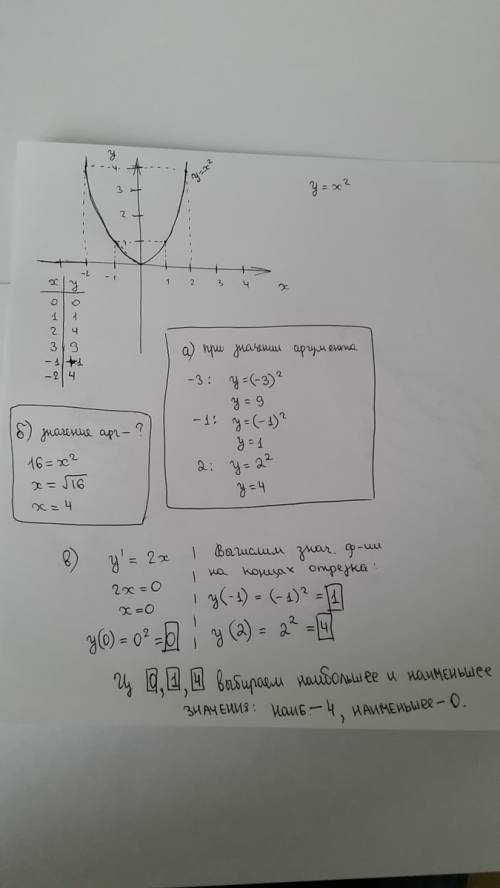 y
y=x²
4
3
2
1
y=x²
-2 -1 1 2 3 4 x
x y
0 0
1 1
2 4
3 9
-1 1
-2 4
а) при значении аргумента
-3: y=(-3)²
y=9
-1: y=(-1)²
y=1
2: y=2²
y=4
б) значение арг-?
16=x²
x=√16
x=4
в) y'=2x
2x=0
x=0
y(0)=0²=0
Вычислим знач. ф-ии
на концах отрезка:
y(-1)=(-1)²=1
y(2)=2²=4
Из 0, 1, 4 выбираем наибольшее и наименьшее
значения: наиб-4, наименьшее-0.